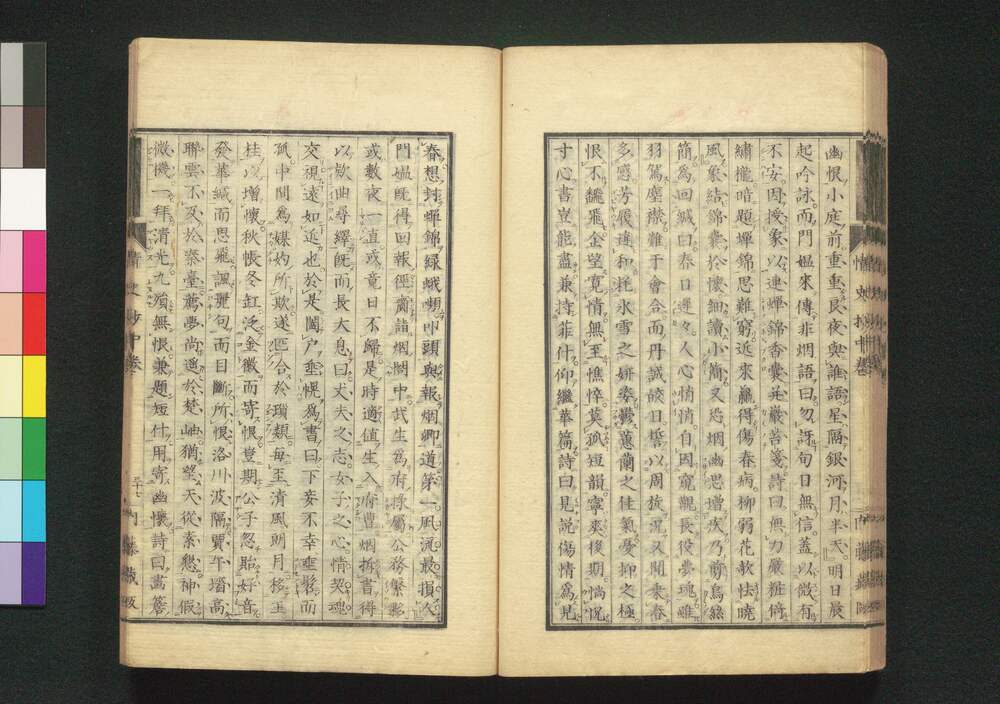 幽恨小庭前重重良夜與誰語星隔銀河月半天明日晨
起吟詠而門媼來傳非烟語曰勿訝旬日無信蓋以微有
不安因授象以連蟬錦香囊并巖苔箋詩曰無力嚴粧倚
繡櫳暗題蟬錦思難窮近來羸得傷春病柳弱花欹怯曉
風象結錦囊於懷細讀小簡又恐烟幽思增疾乃剪烏絲
簡為回緘曰春日遲々人心悄悄自因窺覯長役夢魂雖
羽駕塵襟難于會合而丹誠皎日誓以周旋況又聞乗春
多感芳履違和耗氷雪之姸姿欝蕙蘭之佳氣憂抑之極
恨不飜飛企望寛情無至憔悴莫孤短韻寧爽後期惝怳
寸心書豈能盡兼持菲什仰繼華篇詩曰見説傷情為見
春想封蟬錦綠蛾顰叩頭與報烟卿道第一風流最損人
門媼既得回報徑齎詣烟閤中武生為府掾屬公務繁夥
或數夜一直或竟日不歸是時適値生入府曹烟拆書得
以欵曲尋繹既而長大息曰丈夫之志女子之心情契魂
交視遠如近也於是闔户垂幌為書曰下妾不幸垂髫而
孤中間為媒妁所欺遂匹合於瑣類每至清風朗月移玉
桂以增懷秋帳冬釭泛金徽而寄恨豈期公子忽貽好音
發華緘而思飛諷麗句而目斷所恨洛川波隔賈午墻高
聯雲不及於秦臺薦夢尚遥於楚岫猶望天從素懇神假
微機一拜清光九殞無恨兼題短什用寄幽懷詩曰畫簷
情史抄中巻